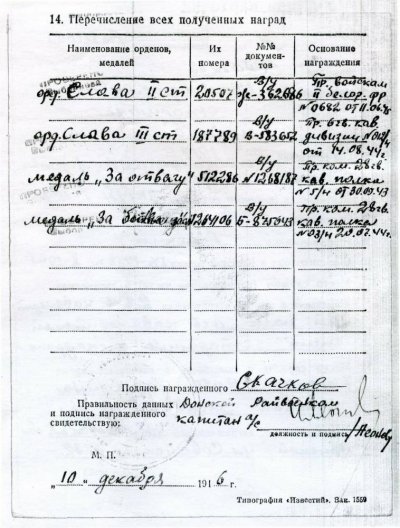 14. Перечисление всех полученных наград
Наименование орденов, медалей
Их номера
№№ документов
Основание награждения
орд. Слава II ст
20507
В/у
Ж-362686
Пр. войскам
II белор. фр
№0682 от 11.06.45
орд. Слава III ст
187789
В/у
В-583652
Пр. 6 гв. кав.
дивизии
от 14.08.44г.
медаль „За отвагу"
512286
В/у
№1268187
Пр. ком. 28 гв.
кав. полка
№5/н от 30.09.43
медаль „За
В/у
Б-875043
Пр. ком. 28 гв.
кав. полка
№03/н 20.07.44г.
Подпись награжденного Скачков
Правильность данных Донской Райвоенкомат
и подпись награжденного
свидетельствую: капитан а/с
должность и подпись
М. П.
„10" декабря 1916 г.
Типография «Известий». Зак. 1559